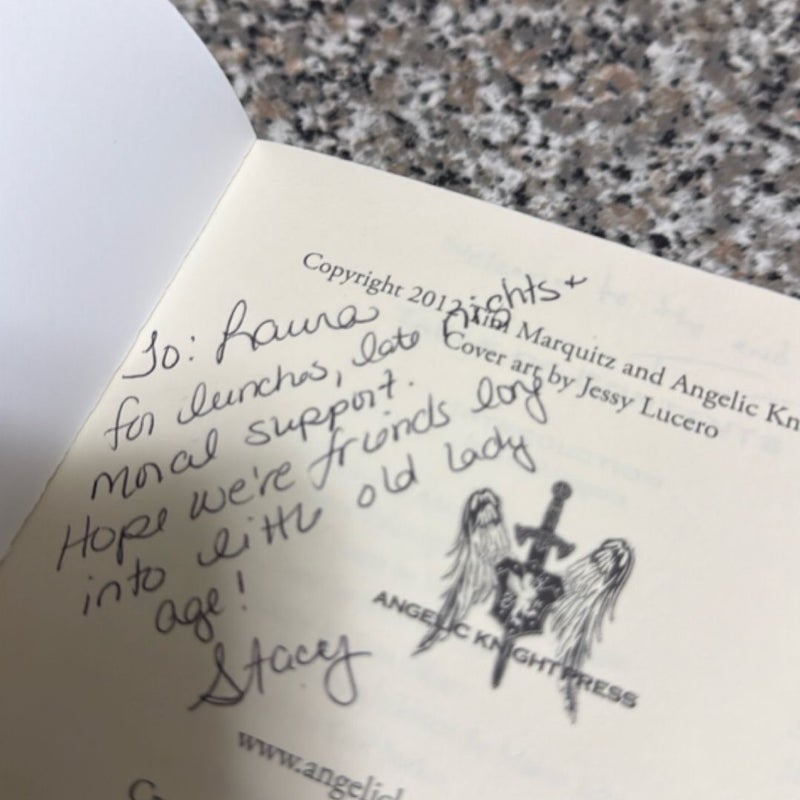 Copyright 2012 Tim Marquitz and Angelic Kn
Cover art by Jessy Lucero
To: Laura
for lunches, late nights +
moral support.
Hope we're friends long
into little old lady
age!
Stacy
ANGELIC KNIGHT PRESS
www.angelick